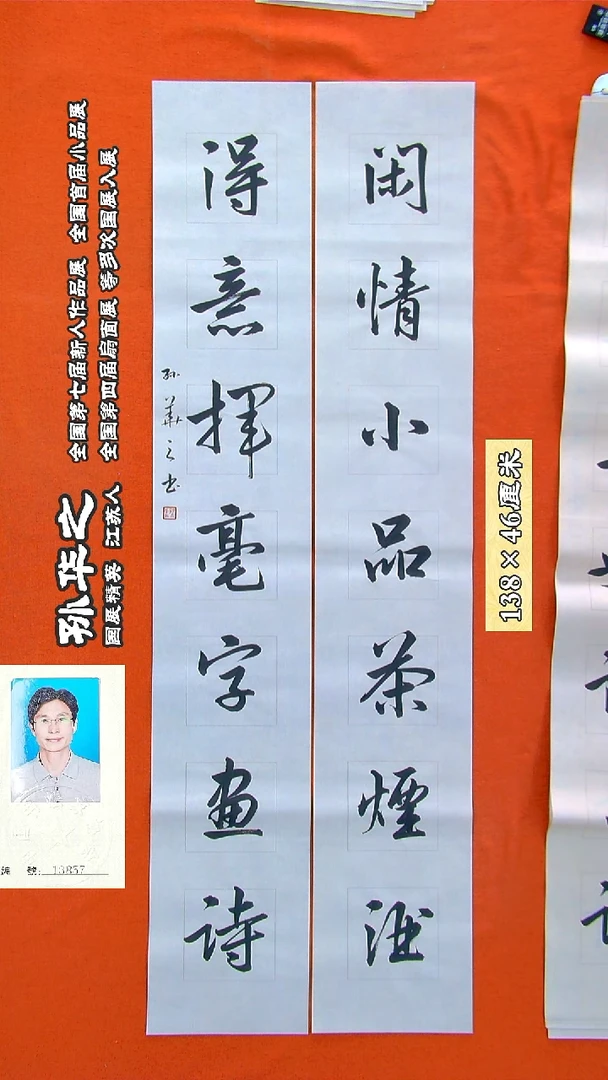 閑情小品茶煙酒
得意揮毫字画诗
孙華之书
孙华之
国展精英 江苏人
全国第七届新人作品展 全国首届小品展
全国第四届扇面展 等多次国展入展
138×46厘米
编 號: 13857